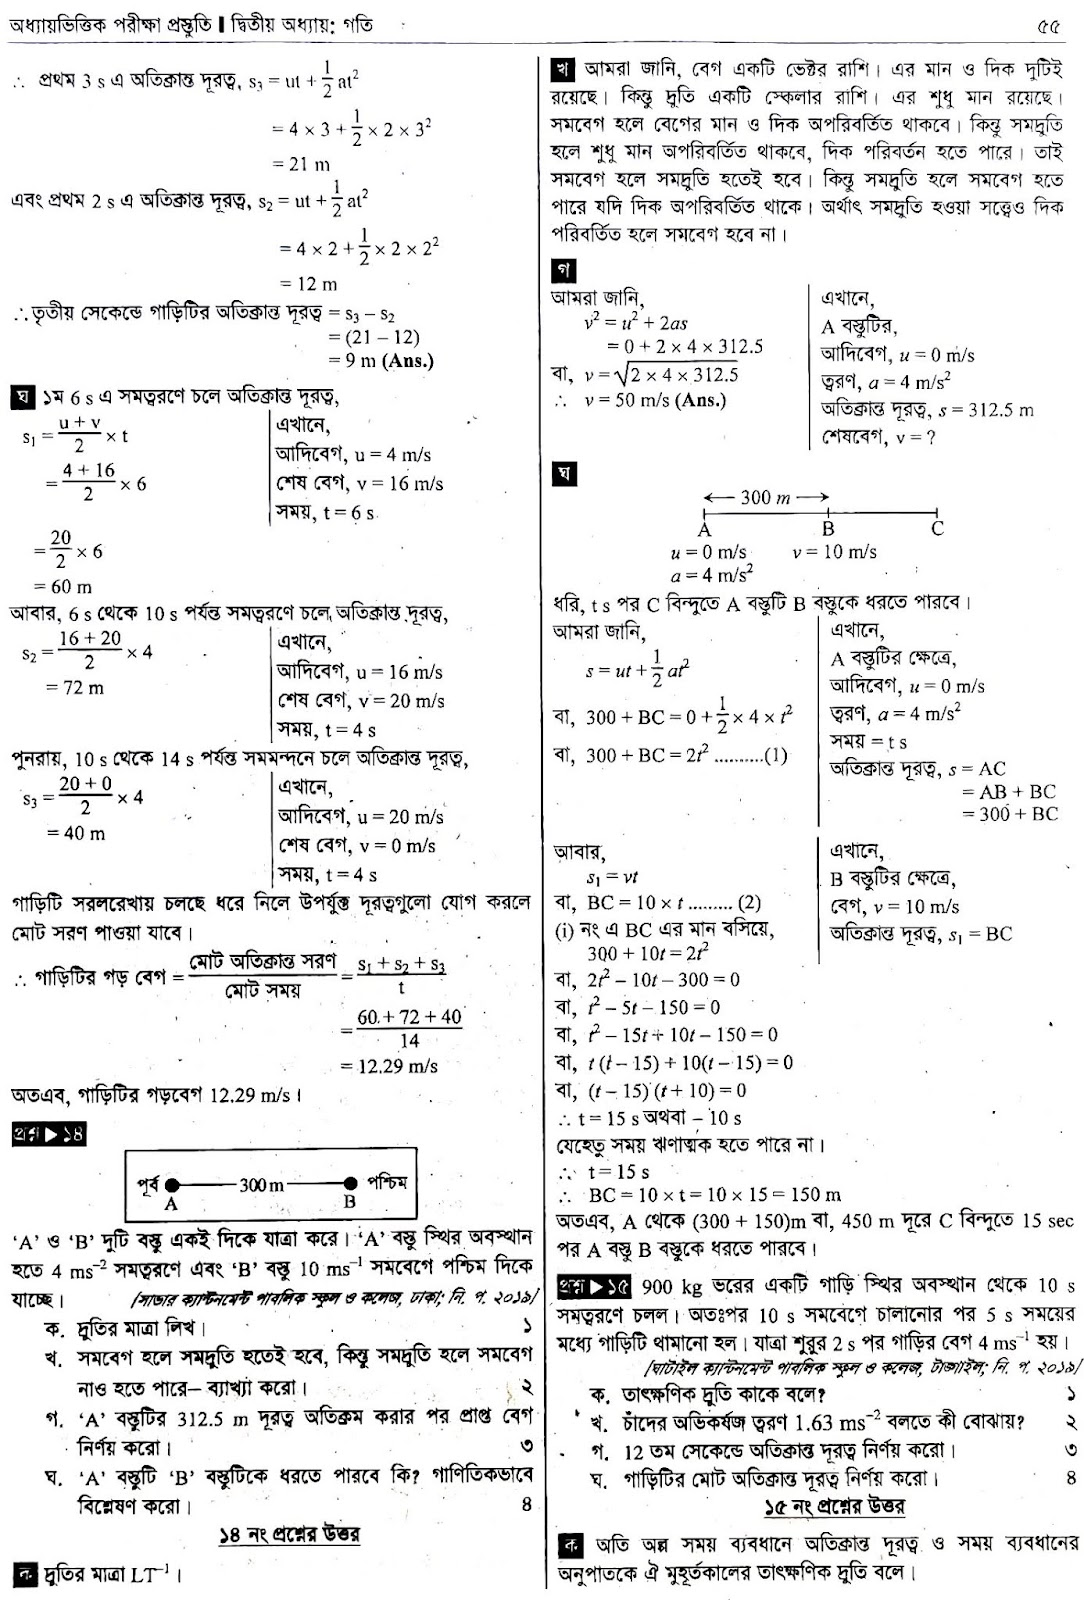 অধ্যায়ভিত্তিক পরীক্ষা প্রস্তুতি ▌ দ্বিতীয় অধ্যায়: গতি ৫৫
∴ প্রথম 3 s এ অতিক্রান্ত দূরত্ব, s₃ = ut + 1/2 at²
= 4 × 3 + 1/2 × 2 × 3²
= 21 m
এবং প্রথম 2 s এ অতিক্রান্ত দূরত্ব, s₂ = ut + 1/2 at²
= 4 × 2 + 1/2 × 2 × 2²
= 12 m
∴ তৃতীয় সেকেন্ডে গাড়িটির অতিক্রান্ত দূরত্ব = s₃ – s₂
= (21 – 12)
= 9 m (Ans.)
ঘ ১ম 6 s এ সমত্বরণে চলে অতিক্রান্ত দূরত্ব,
s₁ = (u + v)/2 × t
= (4 + 16)/2 × 6
= 20/2 × 6
= 60 m
এখানে,
আদিবেগ, u = 4 m/s
শেষ বেগ, v = 16 m/s
সময়, t = 6 s
আবার, 6 s থেকে 10 s পর্যন্ত সমত্বরণে চলে অতিক্রান্ত দূরত্ব,
s₂ = (16 + 20)/2 × 4
= 72 m
এখানে,
আদিবেগ, u = 16 m/s
শেষ বেগ, v = 20 m/s
সময়, t = 4 s
পুনরায়, 10 s থেকে 14 s পর্যন্ত সমমন্দনে চলে অতিক্রান্ত দূরত্ব,
s₃ = (20 + 0)/2 × 4
= 40 m
এখানে,
আদিবেগ, u = 20 m/s
শেষ বেগ, v = 0 m/s
সময়, t = 4 s
গাড়িটি সরলরেখায় চলছে ধরে নিলে উপর্যুক্ত দূরত্বগুলো যোগ করলে
মোট সরণ পাওয়া যাবে।
∴ গাড়িটির গড় বেগ = মোট অতিক্রান্ত সরণ/মোট সময় = (s₁ + s₂ + s₃)/t
= (60 + 72 + 40)/14
= 12.29 m/s
অতএব, গাড়িটির গড়বেগ 12.29 m/s।
প্রশ্ন ▶ ১৪
পূর্ব 300 m পশ্চিম
A B
‘A’ ও ‘B’ দুটি বস্তু একই দিকে যাত্রা করে। ‘A’ বস্তু স্থির অবস্থান
হতে 4 ms⁻² সমত্বরণে এবং ‘B’ বস্তু 10 ms⁻¹ সমবেগে পশ্চিম দিকে
যাচ্ছে। [সাভার ক্যান্টনমেন্ট পাবলিক স্কুল ও কলেজ, ঢাকা; নি. প. ২০১৯]
ক. দ্রুতির মাত্রা লিখ। ১
খ. সমবেগ হলে সমদ্রুতি হতেই হবে, কিন্তু সমদ্রুতি হলে সমবেগ
নাও হতে পারে– ব্যাখ্যা করো। ২
গ. ‘A’ বস্তুটির 312.5 m দূরত্ব অতিক্রম করার পর প্রাপ্ত বেগ
নির্ণয় করো। ৩
ঘ. ‘A’ বস্তুটি ‘B’ বস্তুটিকে ধরতে পারবে কি? গাণিতিকভাবে
বিশ্লেষণ করো। ৪
১৪ নং প্রশ্নের উত্তর
ক দ্রুতির মাত্রা LT⁻¹।
খ আমরা জানি, বেগ একটি ভেক্টর রাশি। এর মান ও দিক দুটিই
রয়েছে। কিন্তু দ্রুতি একটি স্কেলার রাশি। এর শুধু মান রয়েছে।
সমবেগ হলে বেগের মান ও দিক অপরিবর্তিত থাকবে। কিন্তু সমদ্রুতি
হলে শুধু মান অপরিবর্তিত থাকবে, দিক পরিবর্তন হতে পারে। তাই
সমবেগ হলে সমদ্রুতি হতেই হবে। কিন্তু সমদ্রুতি হলে সমবেগ হতে
পারে যদি দিক অপরিবর্তিত থাকে। অর্থাৎ সমদ্রুতি হওয়া সত্ত্বেও দিক
পরিবর্তিত হলে সমবেগ হবে না।
গ
আমরা জানি,
v² = u² + 2as
= 0 + 2 × 4 × 312.5
বা, v = √(2 × 4 × 312.5)
∴ v = 50 m/s (Ans.)
এখানে,
A বস্তুটির,
আদিবেগ, u = 0 m/s
ত্বরণ, a = 4 m/s²
অতিক্রান্ত দূরত্ব, s = 312.5 m
শেষবেগ, v = ?
ঘ
300 m
A B C
u = 0 m/s v = 10 m/s
a = 4 m/s²
ধরি, t s পর C বিন্দুতে A বস্তুটি B বস্তুকে ধরতে পারবে।
আমরা জানি,
s = ut + 1/2 at²
বা, 300 + BC = 0 + 1/2 × 4 × t²
বা, 300 + BC = 2t² ..........(1)
এখানে,
A বস্তুটির ক্ষেত্রে,
আদিবেগ, u = 0 m/s
ত্বরণ, a = 4 m/s²
সময় = t s
অতিক্রান্ত দূরত্ব, s = AC
= AB + BC
= 300 + BC
আবার,
s₁ = vt
বা, BC = 10 × t ......... (2)
(i) নং এ BC এর মান বসিয়ে,
300 + 10t = 2t²
এখানে,
B বস্তুটির ক্ষেত্রে,
বেগ, v = 10 m/s
অতিক্রান্ত দূরত্ব, s₁ = BC
বা, 2t² – 10t – 300 = 0
বা, t² – 5t – 150 = 0
বা, t² – 15t + 10t – 150 = 0
বা, t (t – 15) + 10(t – 15) = 0
বা, (t – 15) (t + 10) = 0
∴ t = 15 s অথবা – 10 s
যেহেতু সময় ঋণাত্মক হতে পারে না।
∴ t = 15 s
∴ BC = 10 × t = 10 × 15 = 150 m
অতএব, A থেকে (300 + 150)m বা, 450 m দূরে C বিন্দুতে 15 sec
পর A বস্তু B বস্তুকে ধরতে পারবে।
প্রশ্ন ▶ ১৫ 900 kg ভরের একটি গাড়ি স্থির অবস্থান থেকে 10 s
সমত্বরণে চলল। অতঃপর 10 s সমবেগে চালানোর পর 5 s সময়ের
মধ্যে গাড়িটি থামানো হল। যাত্রা শুরুর 2 s পর গাড়ির বেগ 4 ms⁻¹ হয়।
[ঘাটাইল ক্যান্টনমেন্ট পাবলিক স্কুল ও কলেজ, টাঙ্গাইল; নি. প. ২০১৯]
ক. তাৎক্ষণিক দ্রুতি কাকে বলে? ১
খ. চাঁদের অভিকর্ষজ ত্বরণ 1.63 ms⁻² বলতে কী বোঝায়? ২
গ. 12 তম সেকেন্ডে অতিক্রান্ত দূরত্ব নির্ণয় করো। ৩
ঘ. গাড়িটির মোট অতিক্রান্ত দূরত্ব নির্ণয় করো। ৪
১৫ নং প্রশ্নের উত্তর
ক অতি অল্প সময় ব্যবধানে অতিক্রান্ত দূরত্ব ও সময় ব্যবধানের
অনুপাতকে ঐ মুহূর্তকালের তাৎক্ষণিক দ্রুতি বলে।